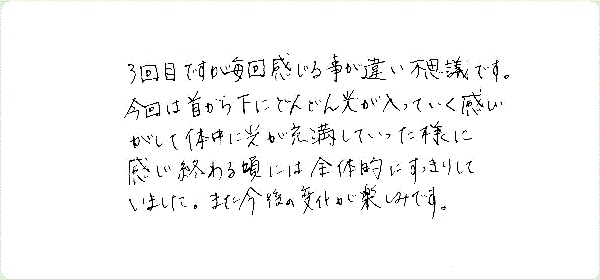 3回目ですが毎回感じる事が違い不思議です。
今回は首から下にどんどん光が入っていく感じ
がして体中に光が充満していった様に
感じ終わる頃には全体的にすっきりして
いました。また今後の変化が楽しみです。